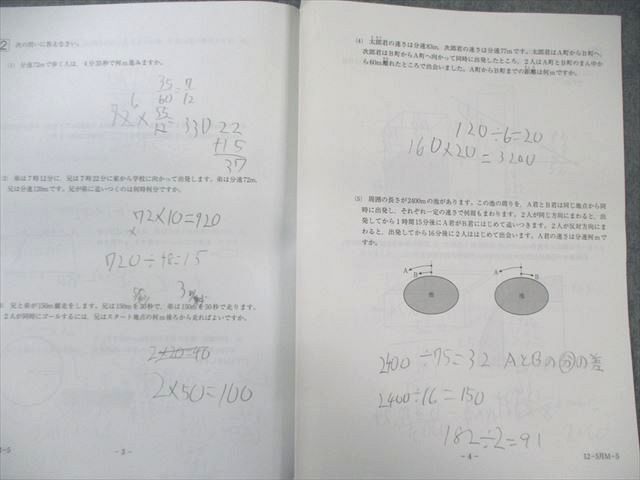 2 次の問いに答えなさい。
(1) 分速72mで歩く人は，4分35秒で何m進みますか。
35/60=7/12
6
72× 55/12 =330
22
+15
37
弟は7時12分に，兄は7時22分に家から学校に向かって出発します。弟は分速72m，
兄は分速120mです。兄が弟に追いつくのは何時何分ですか。
72×10=720
720÷48=15
兄と弟が150m競走をします。兄は150mを30秒で，弟は150mを50秒で走ります。
2人が同時にゴールするには，兄はスタート地点の何m後ろから走ればよいですか。
2×50=100
-3-
(4) 太郎君の速さは分速83m，次郎君の速さは分速77mです。太郎君はA町からB町へ，
次郎君はB町からA町へ向かって同時に出発したところ，2人はA町とB町のまん中か
ら60m離れたところで出会いました。A町からB町までの距離は何mですか。
120÷6=20
160×20=3200
(5) 周囲の長さが2400mの池があります。この池の周りを，A君とB君は同じ地点から同
時に出発し，それぞれ一定の速さで何周もまわります。2人が同じ方向にまわると，出
発してから1時間15分後にA君がB君にはじめて追いつきます。2人が反対方向にま
わると，出発してから16分後に2人ははじめて出会います。A君の速さは分速何mで
すか。
A B 池
A B 池
2400÷75=32 AとBの分の差
2400÷16=150
182÷2=91
-4-
12-5月M-5